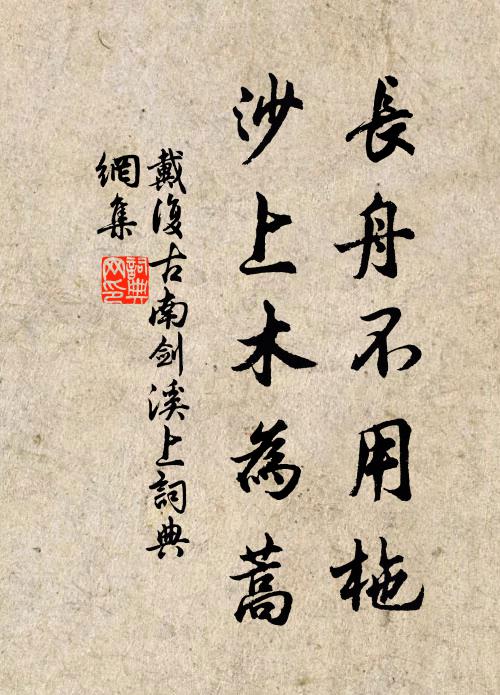 長舟不用柂
沙上木為蒿
戴復古南劍溪上詞典
網集
詞典網印